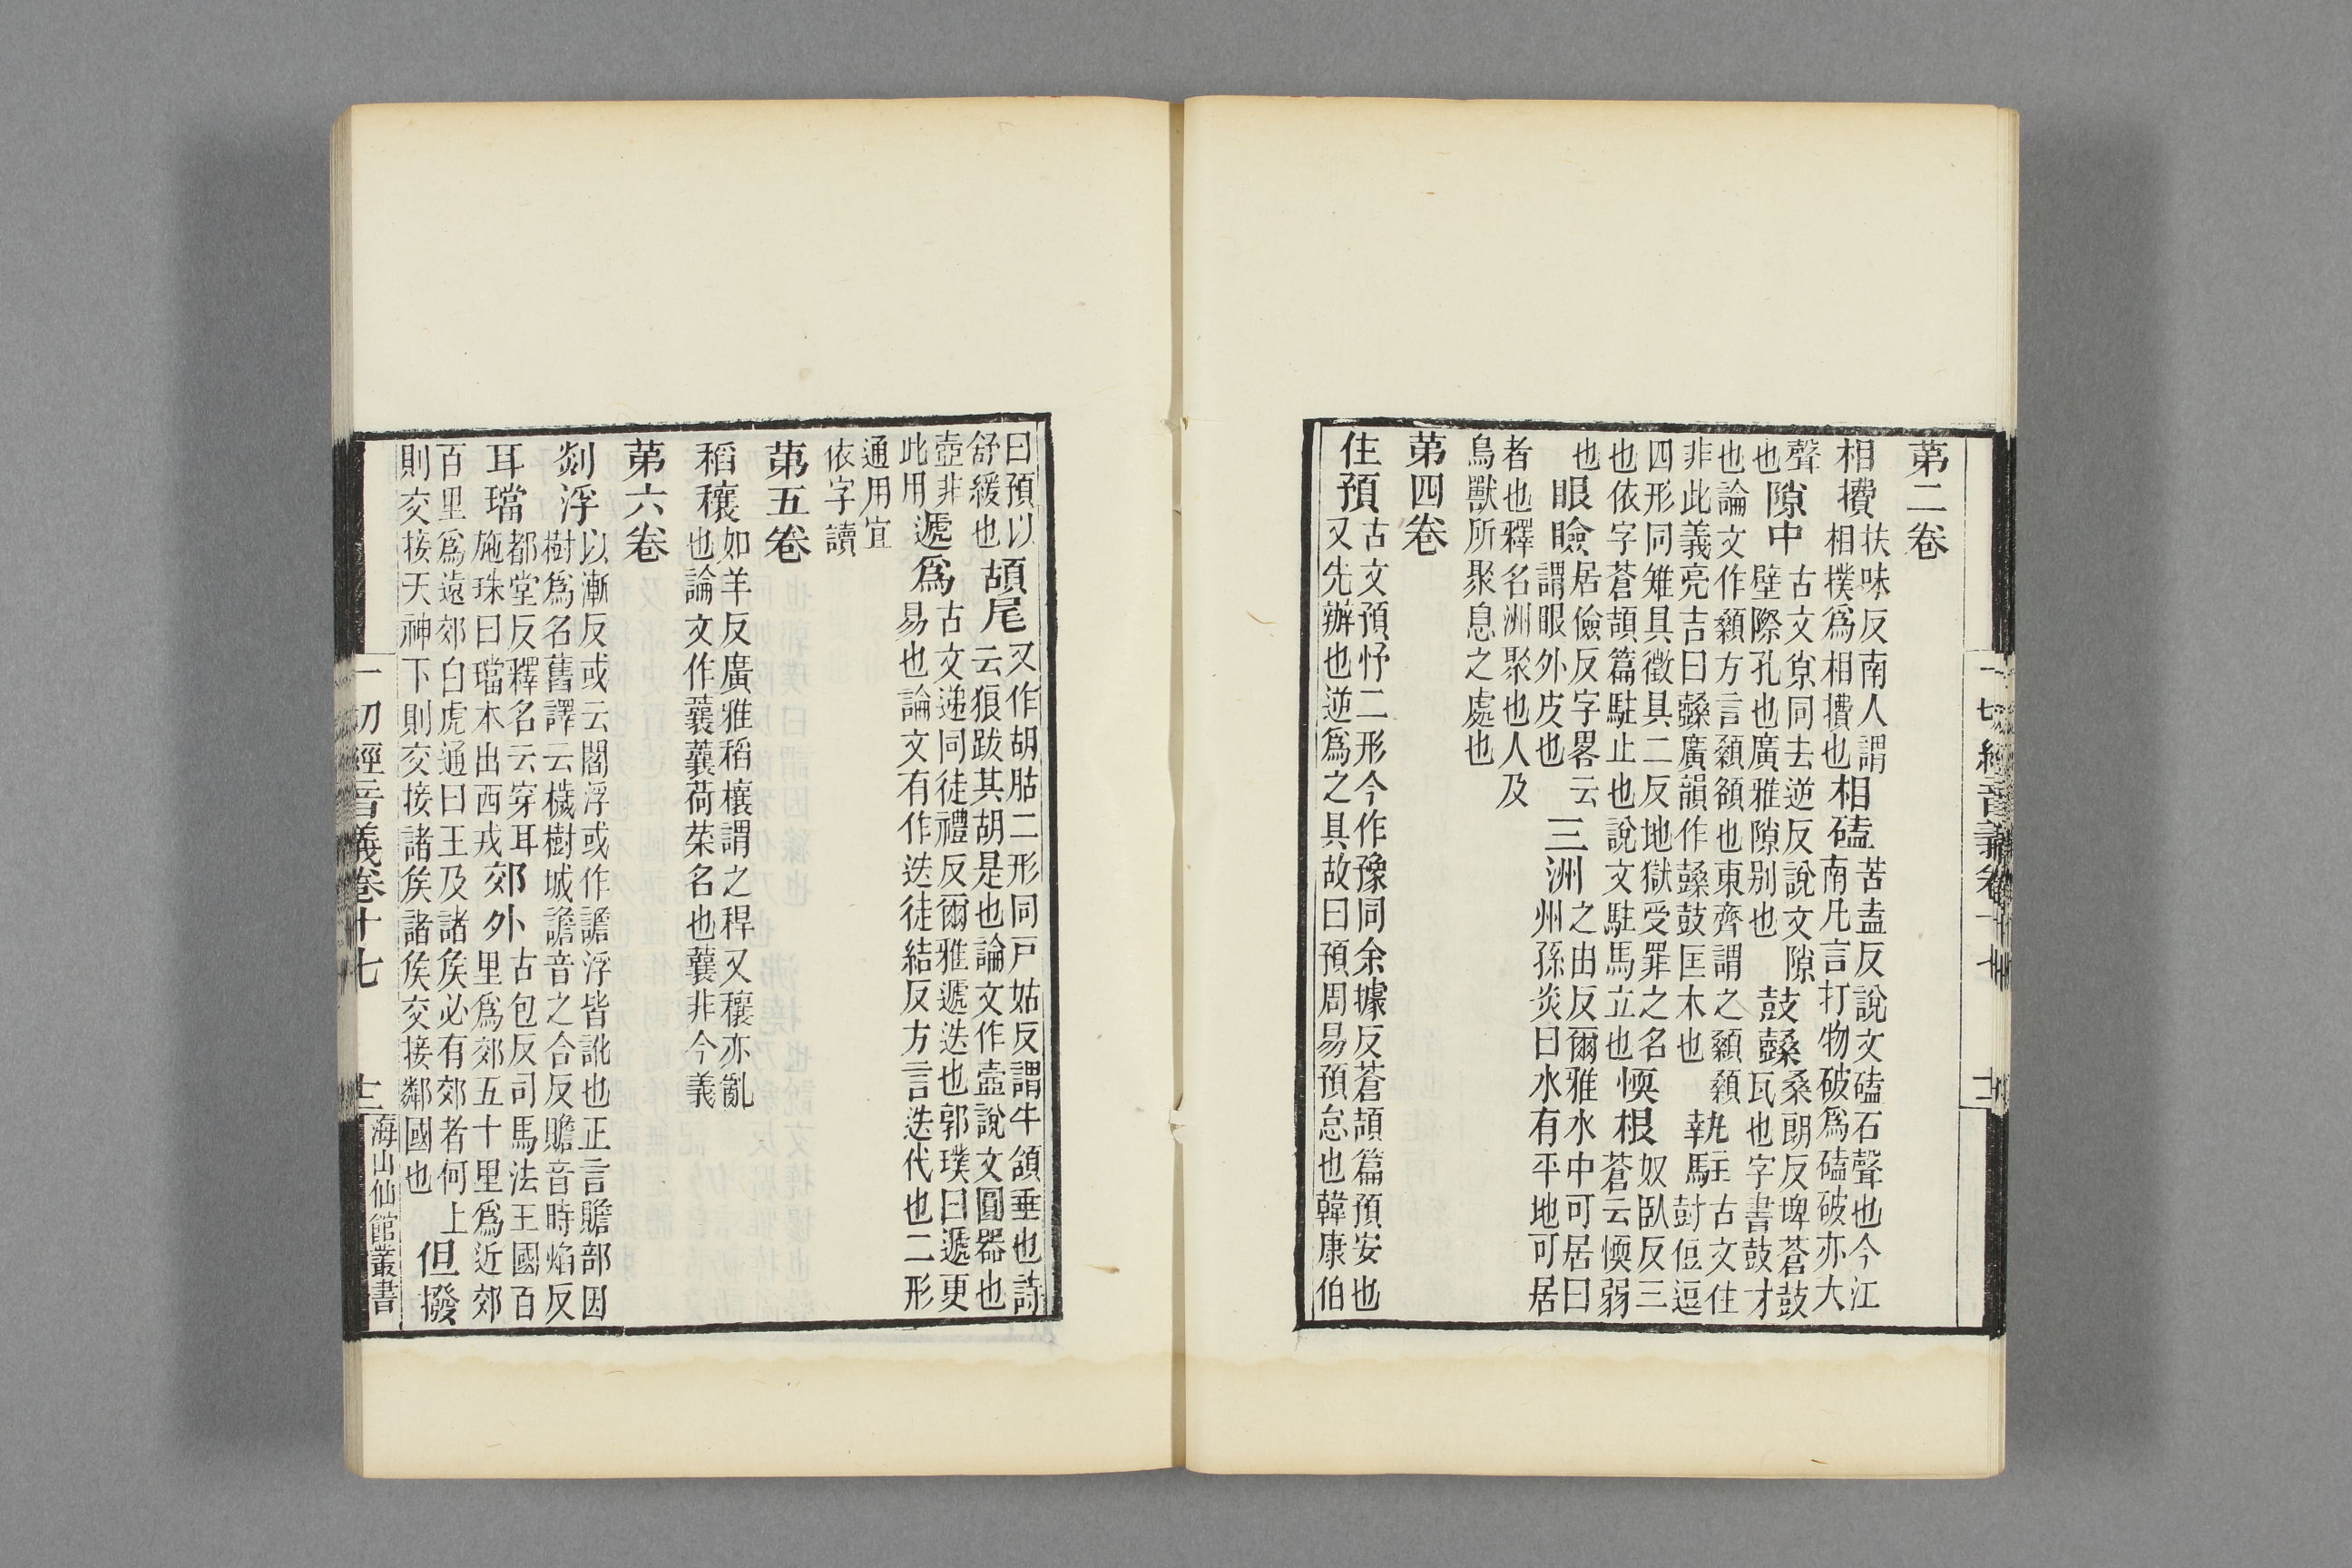 一切經音義卷十七 十二
第二卷
相𢶷扶味反南人謂相撲爲相𢶷也相磕苦盍反說文磕石聲也今江南凡言打物破爲磕破亦大
聲也隙中古文𡭴同去逆反說文隙壁際孔也廣雅隙别也鼓桑朗反埤蒼鼓瓦也字書鼓才
也論文作顙方言顙頟也東齊謂之顙顙非此義亮吉曰廣韻作鼓匡木也執駐古文住尌侸逗
四形同雉具徵具二反地獄受罪之名也依字蒼頡篇駐止也說文駐馬立也愞根奴臥反三蒼云愞弱
也眼瞼居儉反字畧云謂眼外皮也三洲之由反爾雅水中可居曰州孫炎曰水有平地可居
者也釋名洲聚也人及鳥獸所聚息之處也
第四卷
住預古文預忬二形今作豫同余據反蒼頡篇預安也又先辦也逆爲之具故曰預周易預怠也韓康伯
曰預以舒緩也頡尾又作胡䏣二形同戸姑反謂牛頷垂也詩云狼跋其胡是也論文作壺說文圓器也
壺非此用遞爲古文递同徒禮反爾雅遞迭也郭璞曰遞更易也論文有作迭徒結反方言迭代也二形
通用宜依字讀
第五卷
稻穰如羊反廣雅稻穰謂之稈又穰亦亂也論文作蘘蘘荷菜名也蘘非今義
第六卷
剡浮以漸反或云閻浮或作譫浮皆訛也正言贍部因樹爲名舊譯云穢樹城譫音之合反贍音時焰反
耳璫都堂反釋名云穿耳施珠曰璫木出西戎郊外古包反司馬法王國百里爲郊五十里爲近郊
百里爲遠郊白虎通曰王及諸矦必有郊者何上則交接天神下則交接諸矦諸矦交接鄰國也但撥
一切經音義卷十七 十二 海山仙館叢書